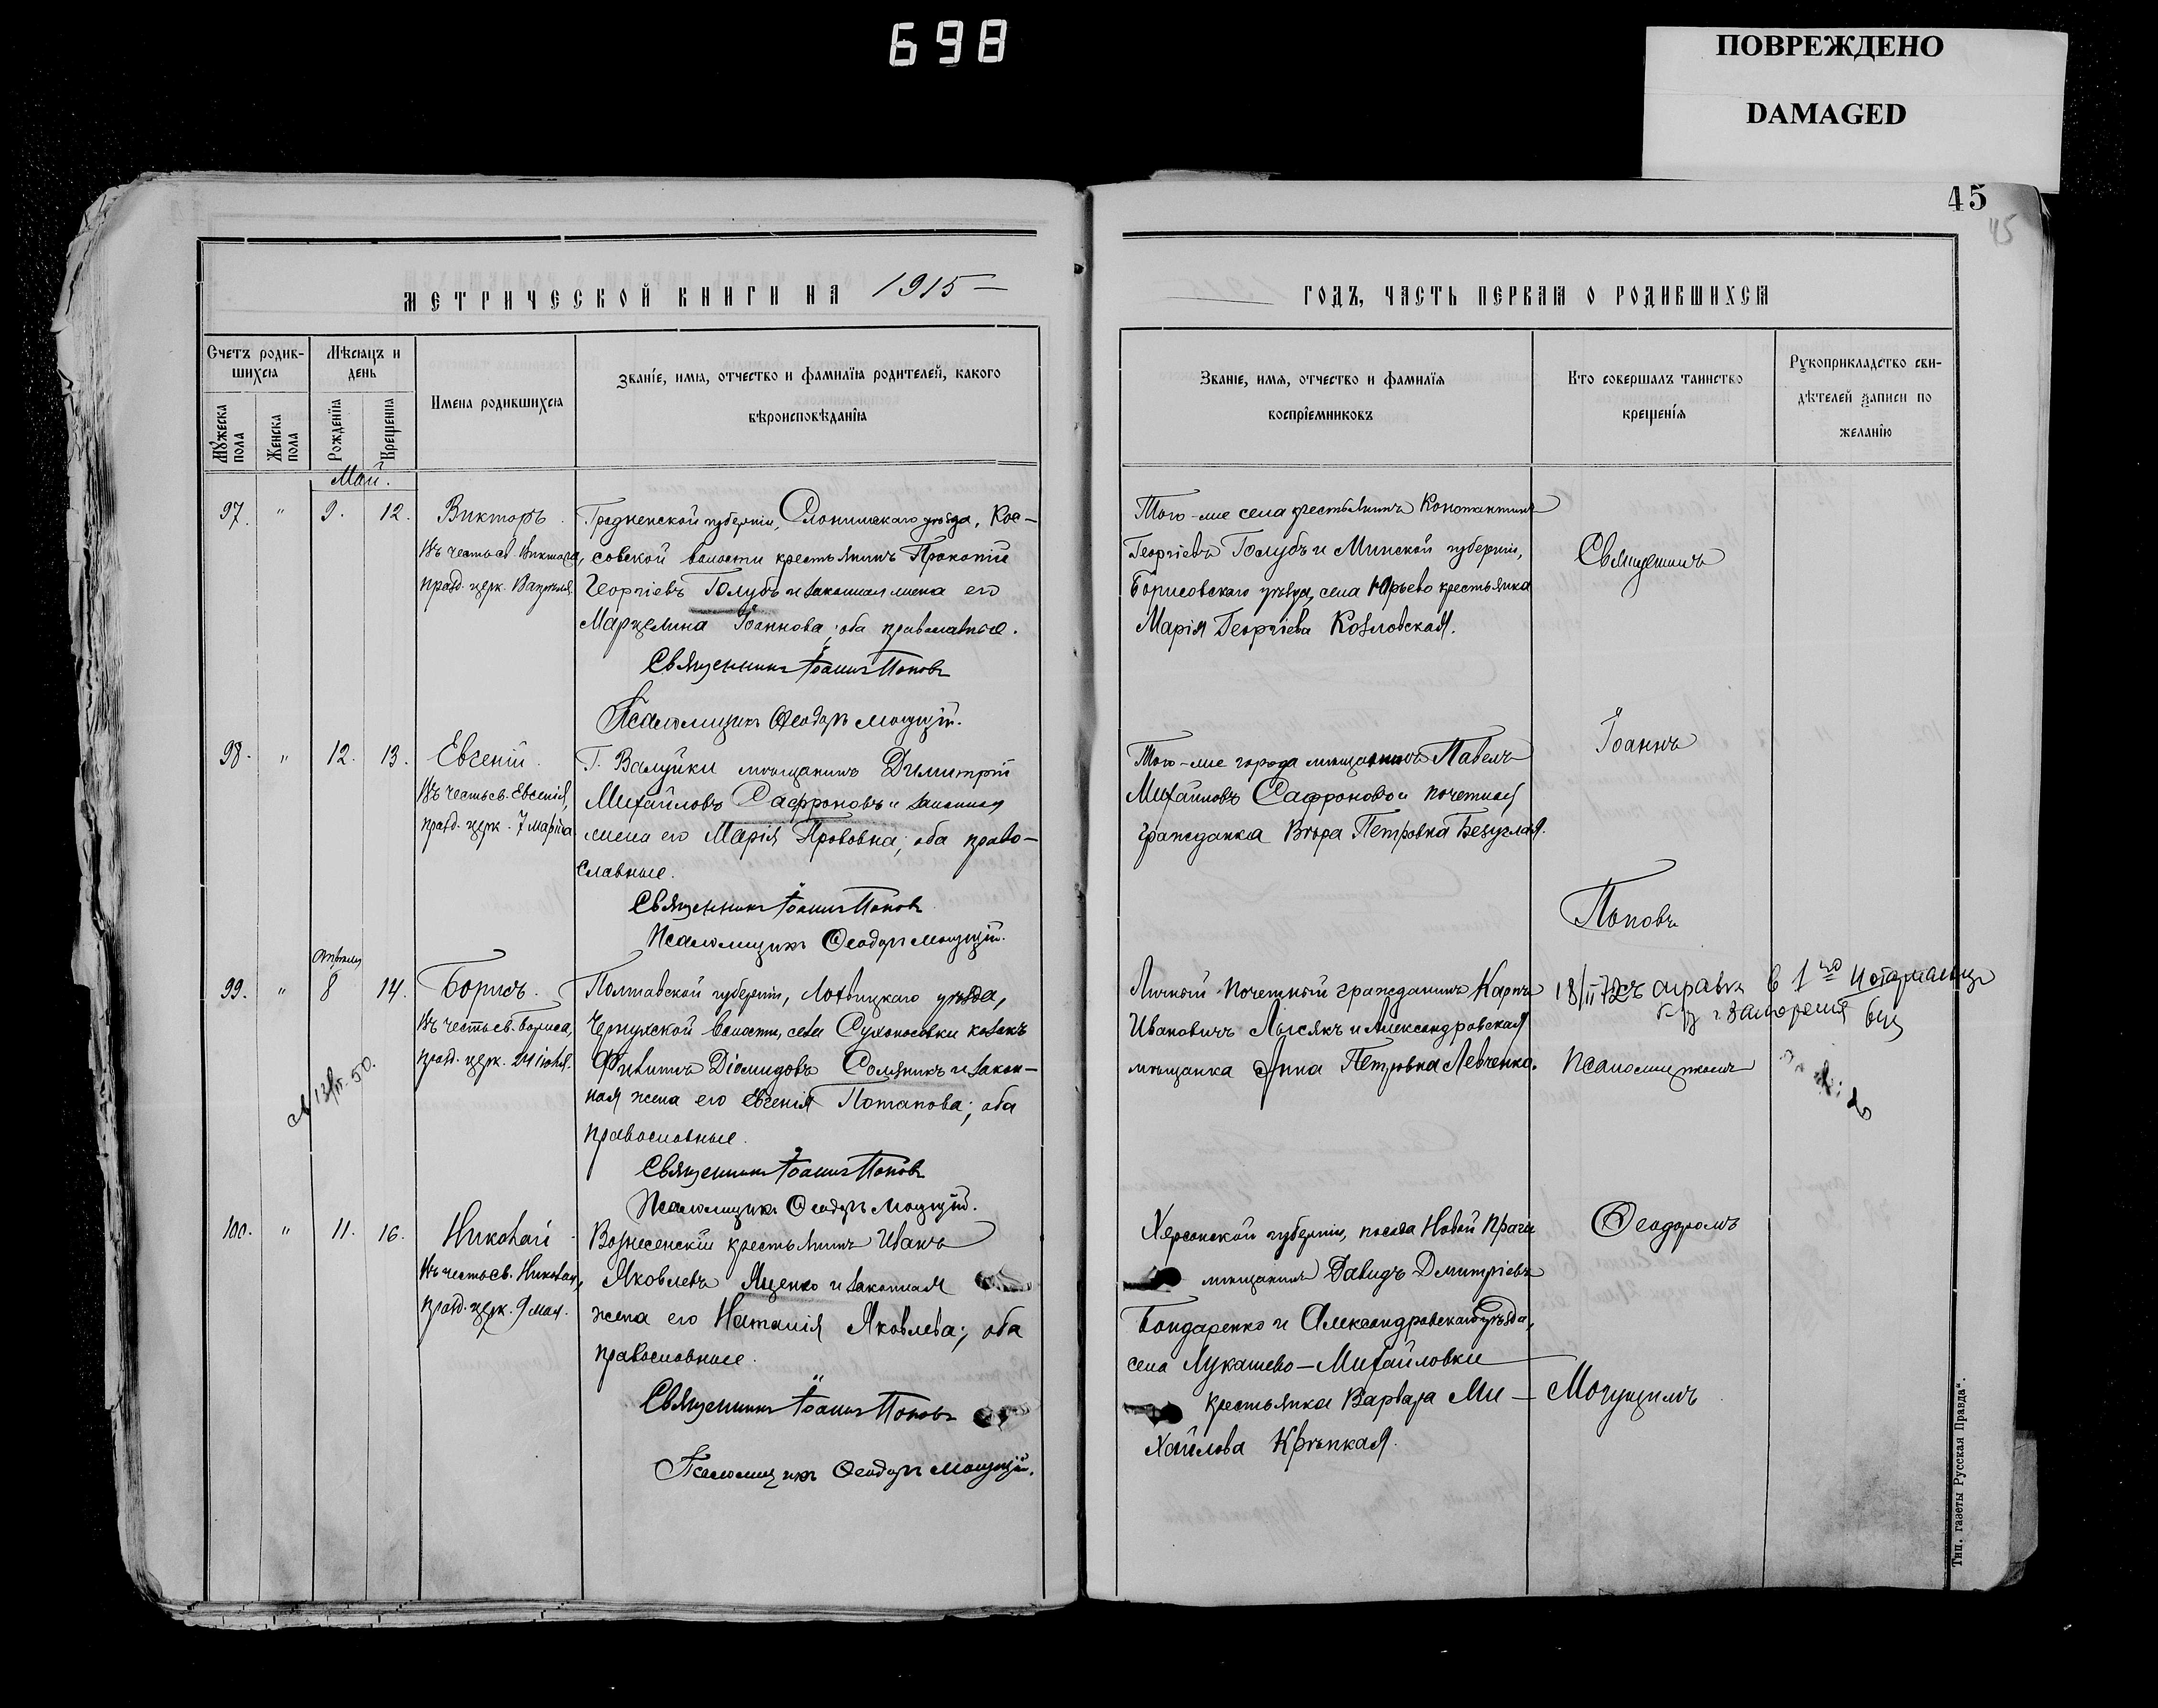 698
ПОВРЕЖДЕНО
DAMAGED
45
45
МЕТРИЧЕСКОЙ КНИГИ НА 1915
Счетъ родившихся
Мѣсяцъ и день
Имена родившихся
Званіе, имя, отчество и фамилія родителей, какого
вѣроисповѣданія
Мужеска пола
Женска пола
Рожденія
Крещенія
Май.
97. " 9. 12. Викторъ.
Въ честь св. Виктора,
празд. церк. 18 апрѣля.
Гродненской губерніи, Слонимскаго уѣзда, Кос-
совской волости крестьянинъ Прокопій
Георгіевъ Голубъ и законная жена его
Марцелина Іоаннова; оба православные.
Священникъ Іоаннъ Поповъ
Псаломщикъ Ѳеодоръ
98. " 12. 13. Евгеній.
Въ честь св. Евгенія,
празд. церк. 7 марта.
Г. Валуйки мѣщанинъ Димитрій
Михайловъ Сафроновъ и законная
жена его Марія Прововна; оба право-
славные.
Священникъ Іоаннъ Поповъ
Псаломщикъ Ѳеодоръ
апрѣля
99. " 8 14. Борисъ.
Въ честь св. Бориса,
празд. церк. 24 іюля.
Полтавской губерніи, Лохвицкаго уѣзда,
Чернухской волости, села Сухоносовки козакъ
Филиппъ Діомидовъ Соляникъ и закон-
ная жена его Евгенія Потапова; оба
православные.
Священникъ Іоаннъ Поповъ
Псаломщикъ Ѳеодоръ
100. " 11. 16. Николай.
Въ честь св. Николая,
празд. церк. 9 мая.
Вознесенскій крестьянинъ Иванъ
Яковлевъ Яценко и законная
жена его Наталія Яковлева; оба
православные.
Священникъ Іоаннъ Поповъ
Псаломщикъ Ѳеодоръ
1915
ГОДЪ, ЧАСТЬ ПЕРВАЯ О РОДИВШИХСЯ
Званіе, имя, отчество и фамилія
воспріемниковъ
Кто совершалъ таинство
крещенія
Рукоприкладство сви-
дѣтелей записи по
желанію
Того-же села крестьянинъ Константинъ
Георгіевъ Голубъ и Минской губерніи,
Борисовскаго уѣзда, села Юрьево крестьянка
Марія Георгіева Козловская.
Священникъ
Іоаннъ
Того-же города мѣщанинъ Павелъ
Михайловъ Сафроновъ и почетная
гражданка Вѣра Петровна Безуглая.
Поповъ
Личный почетный гражданинъ Карпъ
Ивановичъ Лысякъ и Александровская
мѣщанка Анна Петровна Левченко.
18/II 72
псаломщикомъ
Херсонской губерніи, посада Новой Праги
мѣщанинъ Давидъ Дмитріевъ
Бондаренко и Александровскаго уѣзда,
села Лукашево-Михайловки
крестьянка Варвара Ми-
хайлова Крѣпкая.
Ѳеодоромъ
Тип. газеты Русская Правда".